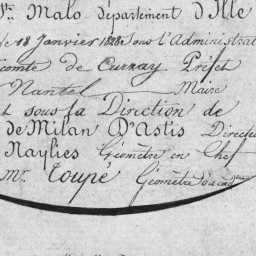 St. Malo département d'Ille
le 18 Janvier 1828 sous l'Administrat
comte de Curzay Préfet
Nantel Maire
t sous la Direction de
de Milan D'Astis Directeu
Naylies Géomètre en Chef
Mr. Coupé Géomètre